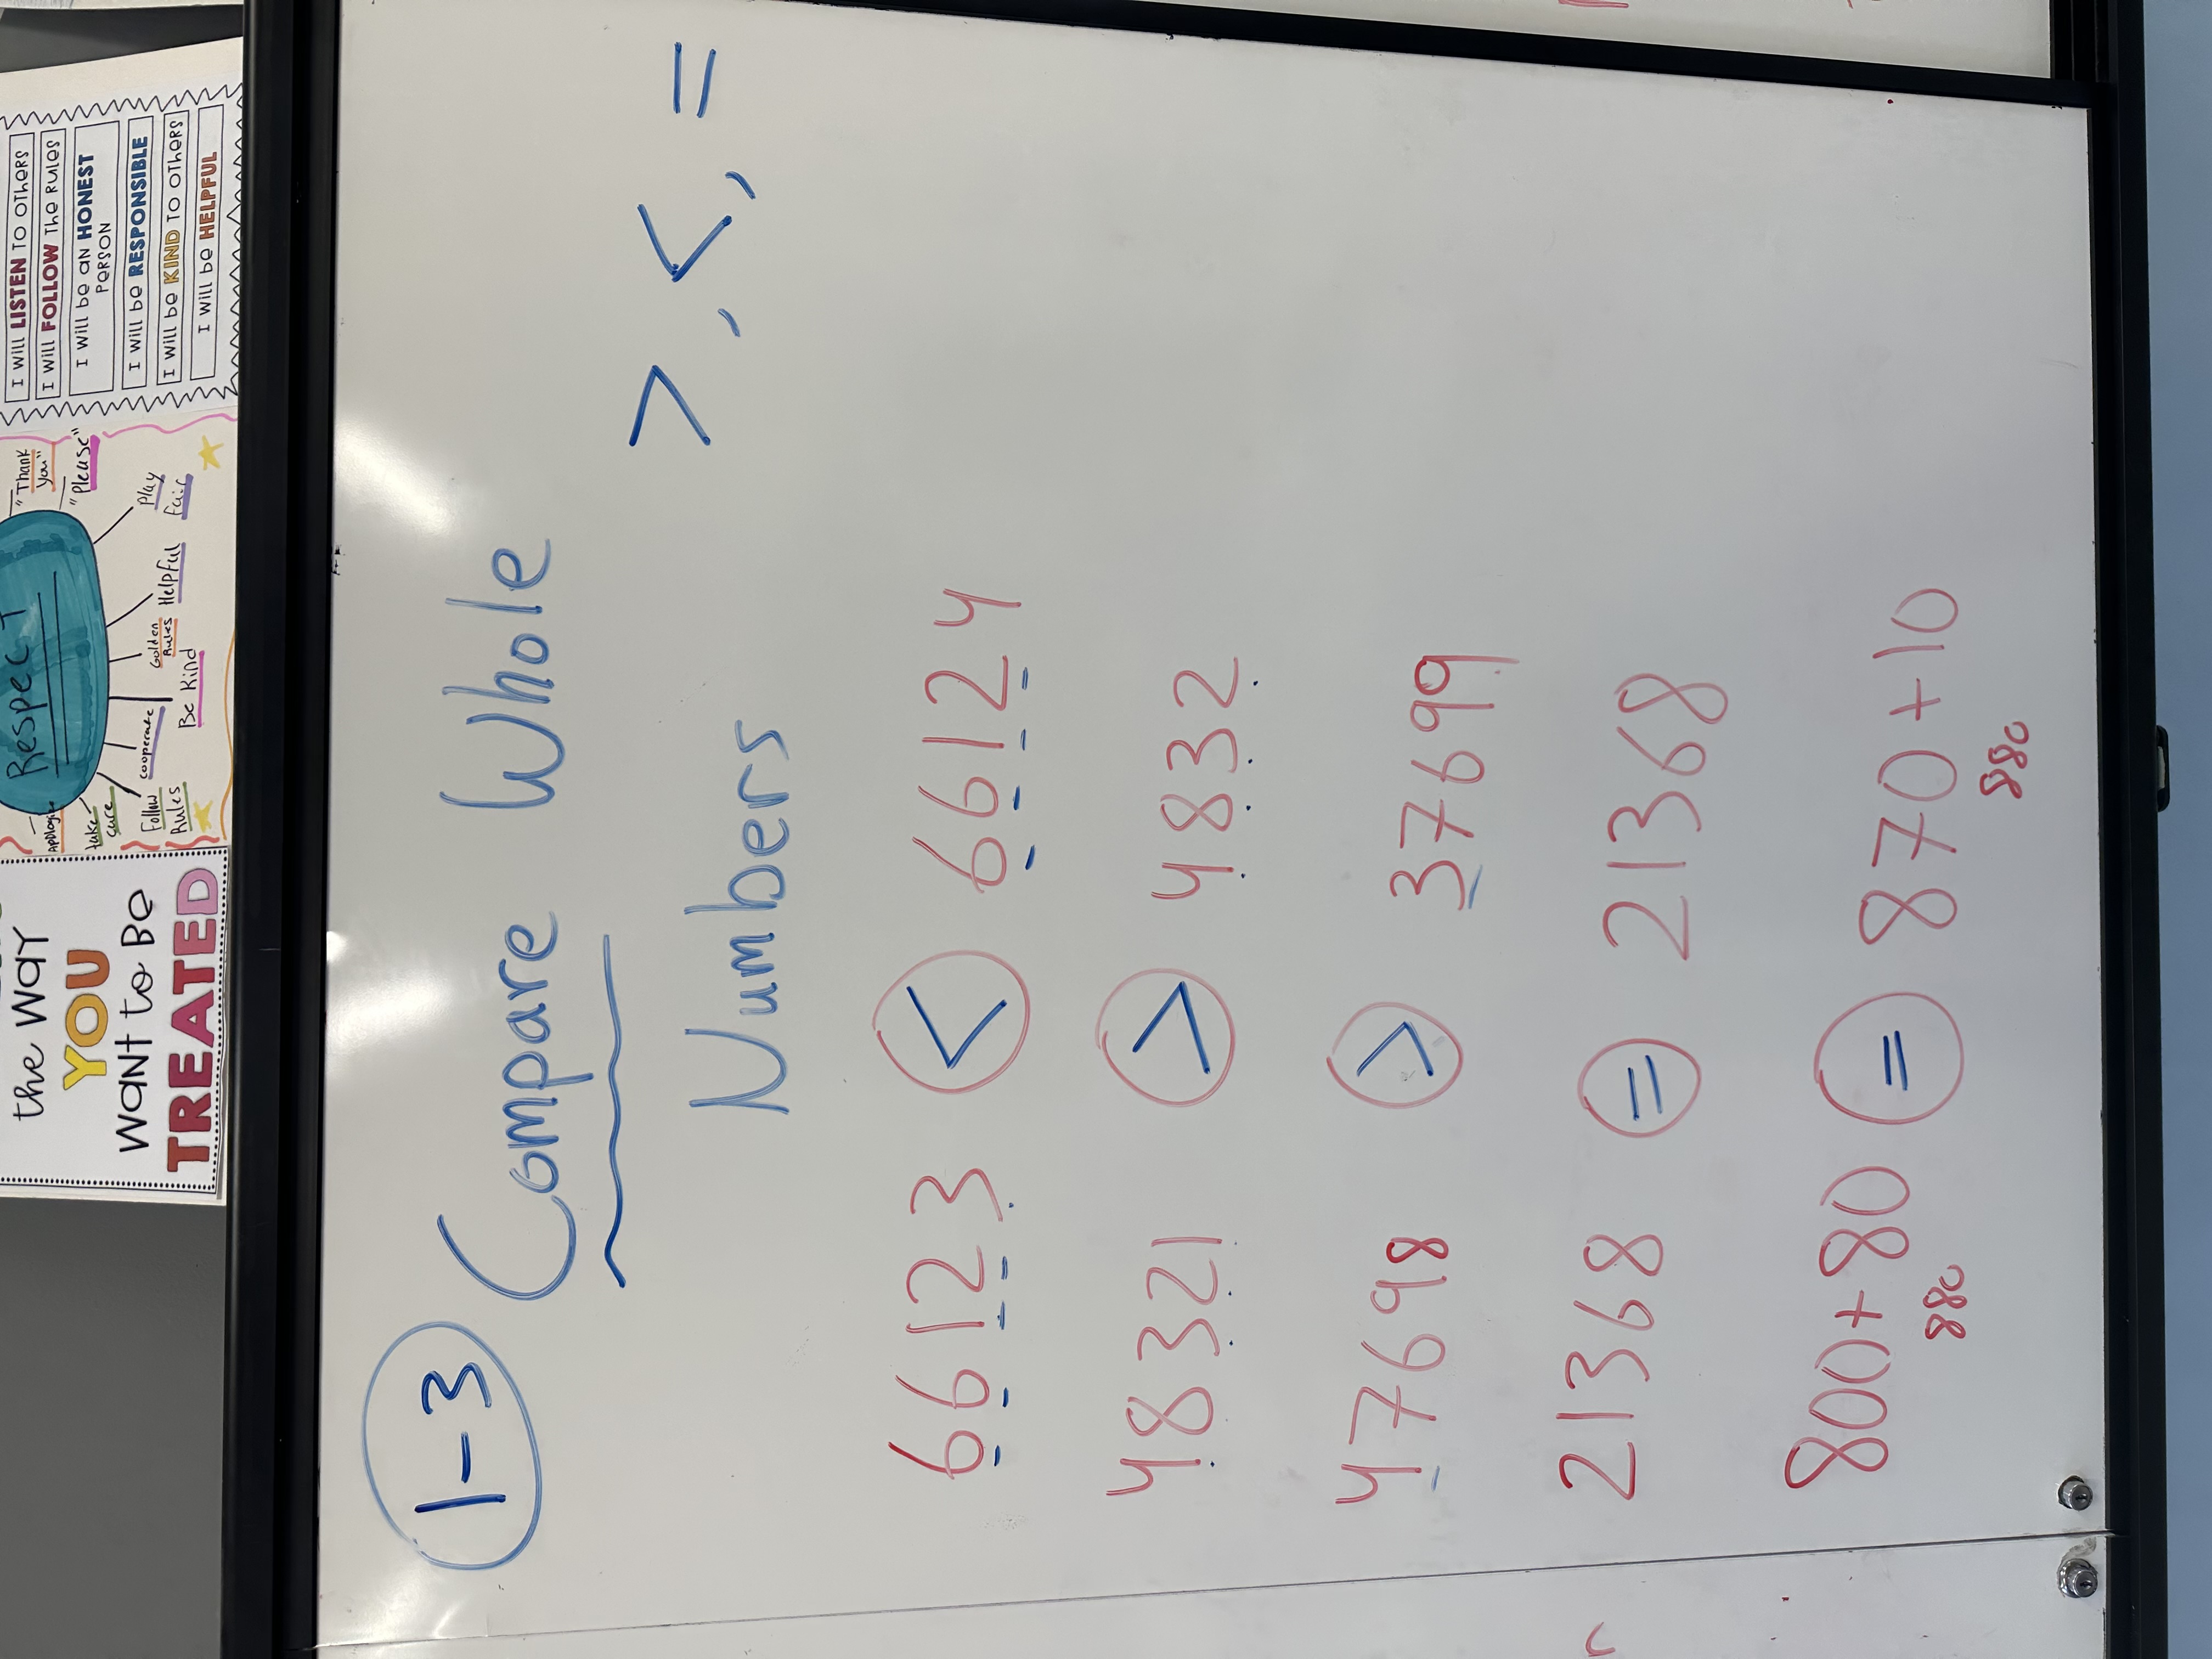 the WAY
YOU
WANT to BE
TREATED
Respect
"Thank you"
"Please"
Play fair
Helpful
Golden Rules
Be Kind
cooperate
Follow Rules
take care
I will LISTEN TO OTHERS
I will FOLLOW THE RULES
I will be AN HONEST
PERSON
I will be RESPONSIBLE
I will be KIND TO OTHERS
I will be HELPFUL
1-3 Compare Whole
Numbers >, <, =
66123 < 66124
48321 > 4832
47698 > 37699
21368 = 21368
800+80 = 870+10
880 880